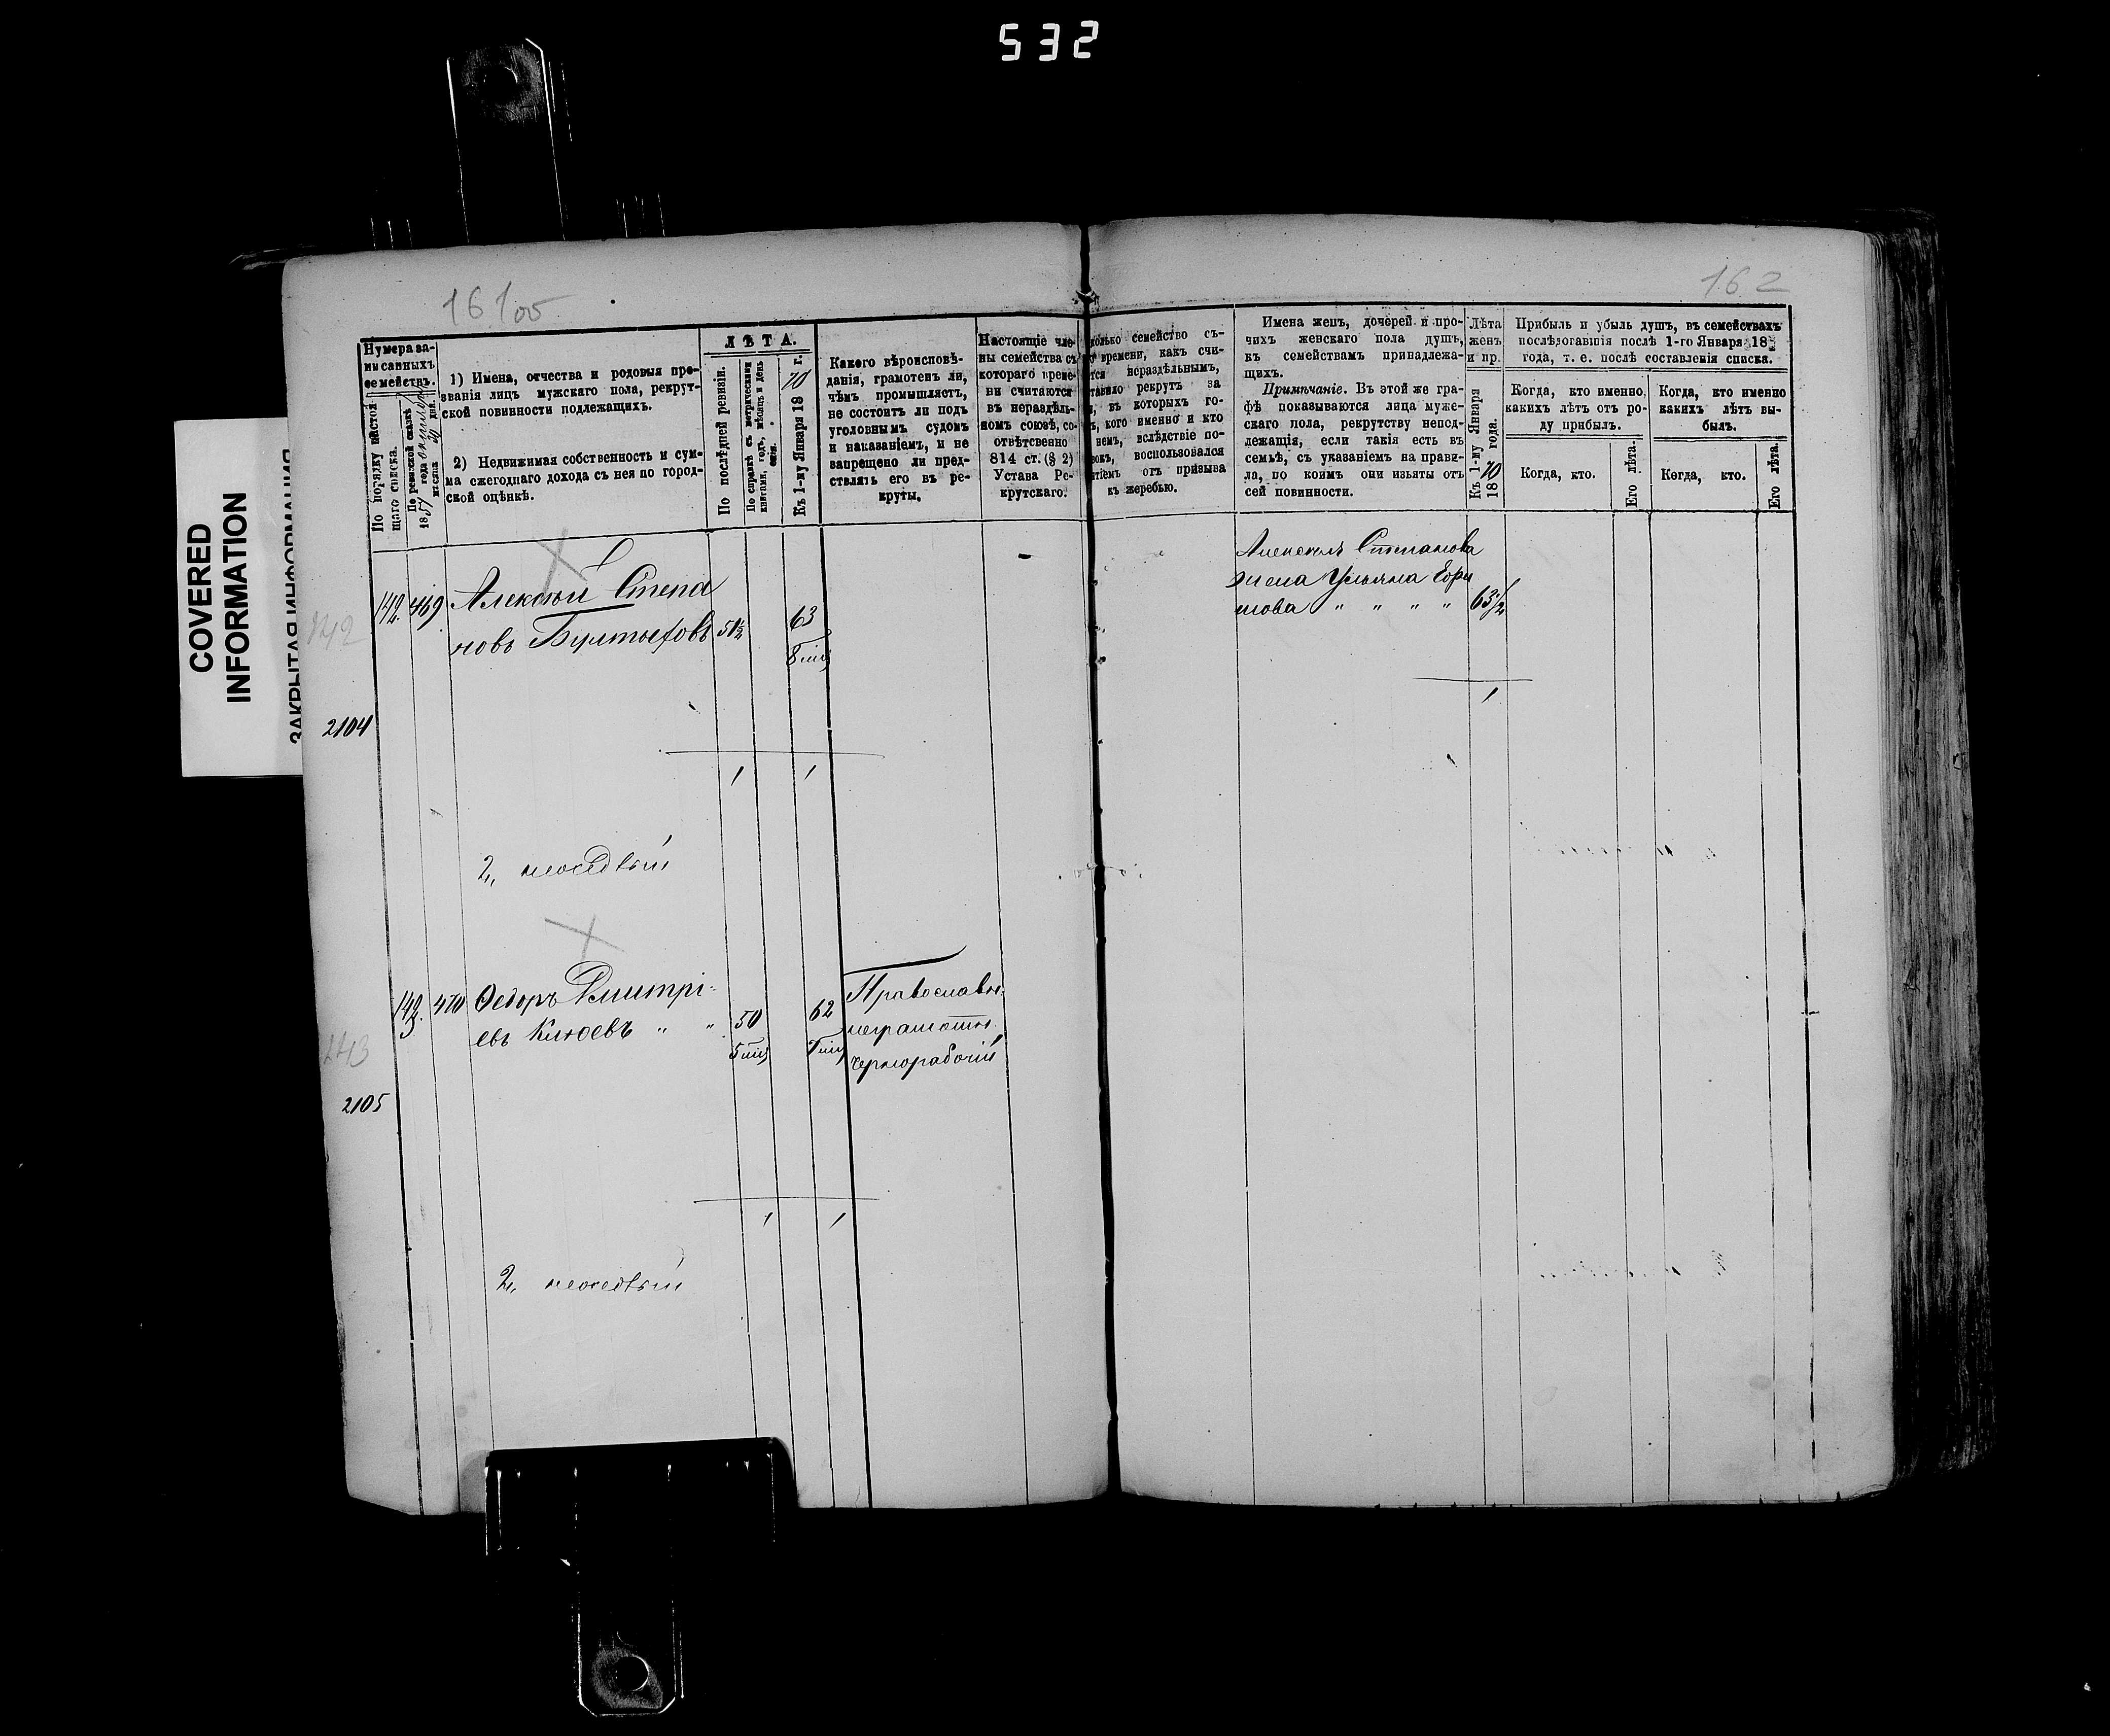 532
COVERED
INFORMATION
ЗАКРЫТАЯ ИНФОРМАЦИЯ
161об
162
Нумера за-
писанныхъ
семействъ.
По порядку настоя-
щаго списка.
По ревизской сказкѣ
1857 года
мѣсяца дня.
1) Имена, отчества и родовыя про-
званія лицъ мужскаго пола, рекрут-
ской повинности подлежащихъ.
2) Недвижимая собственность и сум-
ма ежегоднаго дохода съ нея по город-
ской оцѣнкѣ.
ЛѢТА.
По послѣдней ревизіи.
По справкѣ съ метрическими
книгами, годъ, мѣсяцъ и день
Къ 1-му Января 1870 г.
Какого вѣроисповѣ-
данія, грамотенъ ли,
чѣмъ промышляетъ,
не состоитъ ли подъ
уголовнымъ судомъ
и наказаніемъ, и не
запрещено ли пред-
ставлять его въ ре-
круты.
Настоящіе чле-
ны семейства съ
котораго време-
ни считаются
въ нераздѣль-
номъ союзѣ, со-
отвѣтсвенно
814 ст. (§ 2)
Устава Ре-
крутскаго.
олько семейство съ-
времени, какъ счи-
тся нераздѣльнымъ,
тавило рекрутъ за
, въ которыхъ го-
ъ, кого именно и кто
немъ, вслѣдствіе по-
вокъ, воспользовался
тіемъ отъ призыва
къ жеребью.
Имена женъ, дочерей и про-
чихъ женскаго пола душъ,
къ семействамъ принадлежа-
щихъ.
Примѣчаніе. Въ этой же гра-
фѣ показываются лица муже-
скаго пола, рекрутству непод-
лежащія, если такія есть въ
семьѣ, съ указаніемъ на прави-
ла, по коимъ они изъяты отъ
сей повинности.
Лѣта
женъ
и пр.
Къ 1-му Января
1870 года.
Прибыль и убыль душъ, въ семействахъ
послѣдовавшія послѣ 1-го Января 18
года, т. е. послѣ составленія списка.
Когда, кто именно,
какихъ лѣтъ отъ ро-
ду прибылъ.
Когда, кто именно
какихъ лѣтъ вы-
былъ.
Когда, кто.
Его лѣта.
Когда, кто.
Его лѣта.
142
142. 469
Алексѣй Степа
новъ Бултыховъ 51½
63
8 міц
Алексѣя Степанова
жена Ульяна Ефи
мова " " " " 63½
1
2104
1 1
2,, неоседлый
143
143. 470
Ѳедоръ Дмитрі-
евъ Клюевъ " "
50
5 міц
62
7 міц
Православн.
неграмотн.
чернорабочій
2105
1 1
2,, неоседлый